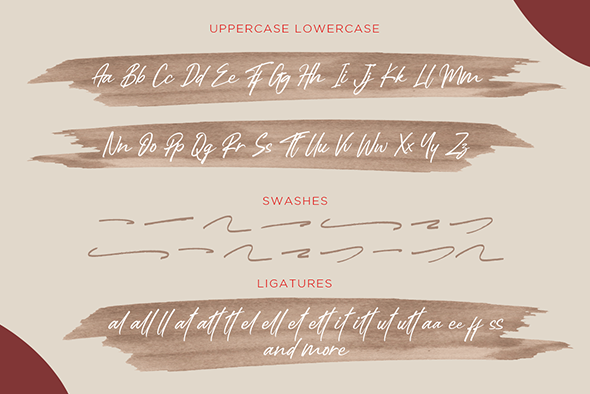 UPPERCASE LOWERCASE
Aa Bb Cc Dd Ee Ff Gg Hh Ii Jj Kk Ll Mm
Nn Oo Pp Qq Rr Ss Tt Uu Vv Ww Xx Yy Zz
SWASHES
LIGATURES
al all ll at att tt el ell et ett it itt ut utt aa ee ff ss
and more